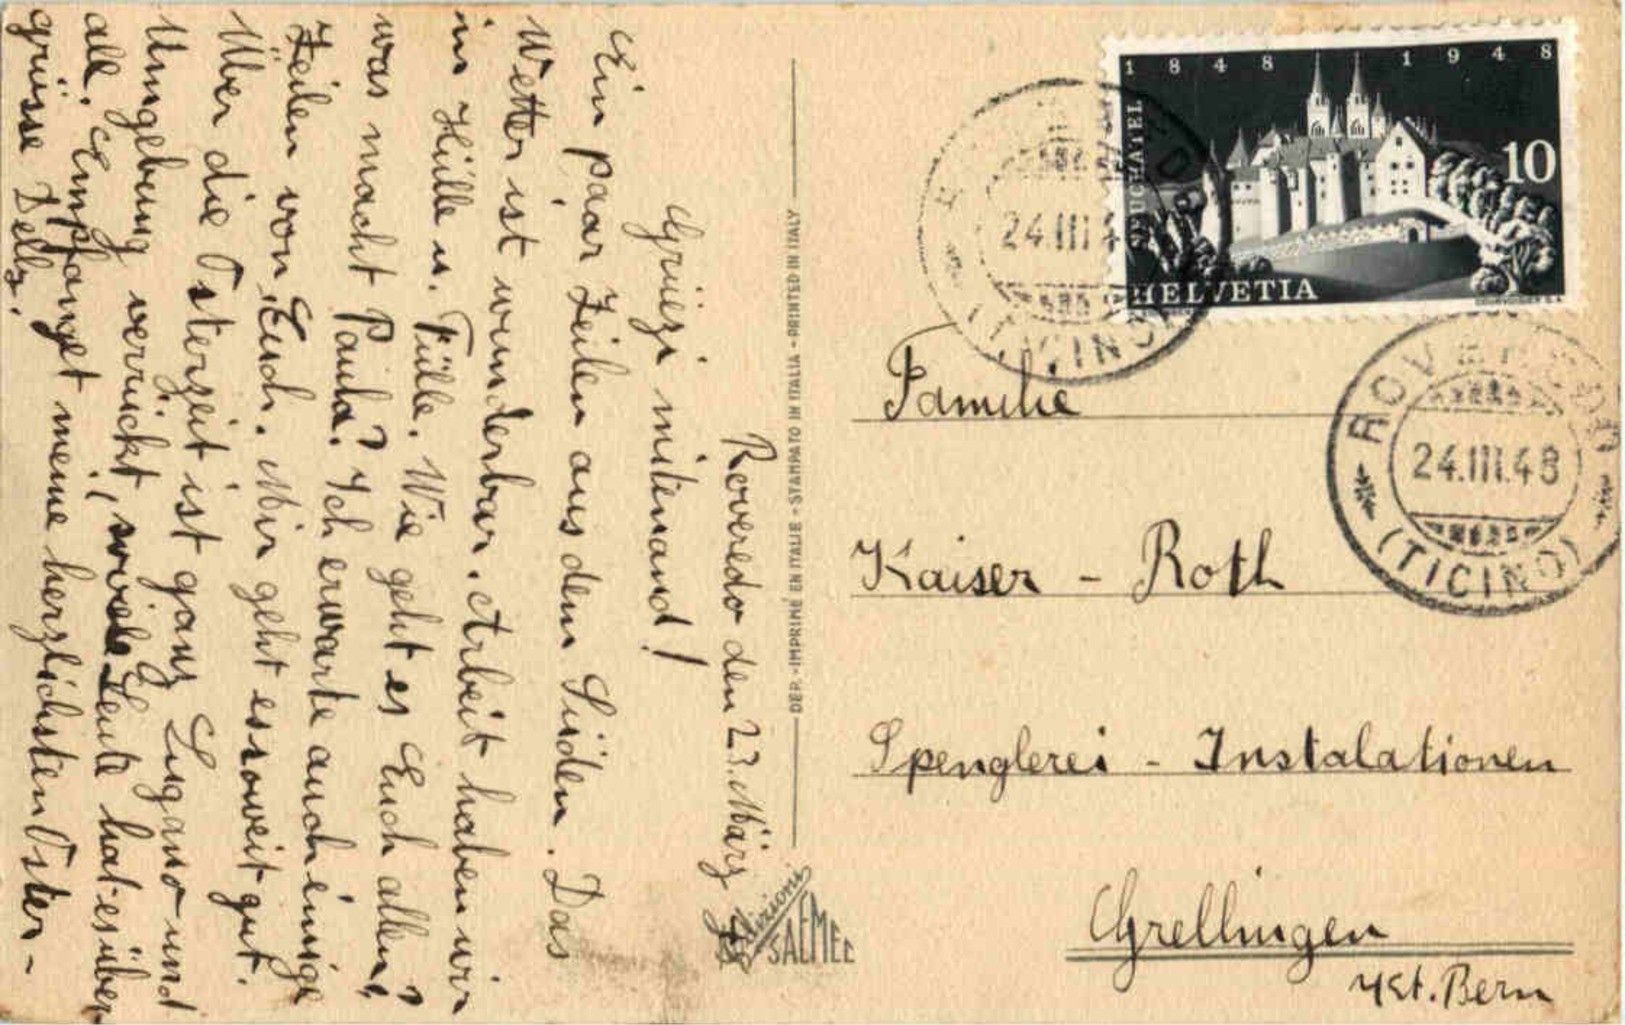 Roveredo den 23. März 48
Grüezi mitenand!
Ein paar Zeilen aus dem Süden. Das
Wetter ist wunderbar. Arbeit haben wir
in Hülle u. Fülle. Wie geht es Euch allen?
was macht Paula? Ich erwarte auch einige
Zeilen von Euch. Mir geht es soweit gut.
Über die Osterzeit ist ganz Lugano und
Umgebung verrückt, soviele Leute hat es über
all. Empfanget meine herzlichsten Oster-
grüsse Dellz.
DEP. - IMPRIMÉ EN ITALIE - STAMPATO IN ITALIA - PRINTED IN ITALY
Edizioni
SAEMEC
1848 1948
NEUCHATEL
10
HELVETIA
24.III.4
(TICINO)
ROVEREDO
24.III.48
(TICINO)
Familie
Kaiser - Roth
Spenglerei - Instalationen
Grellingen
Kt. Bern